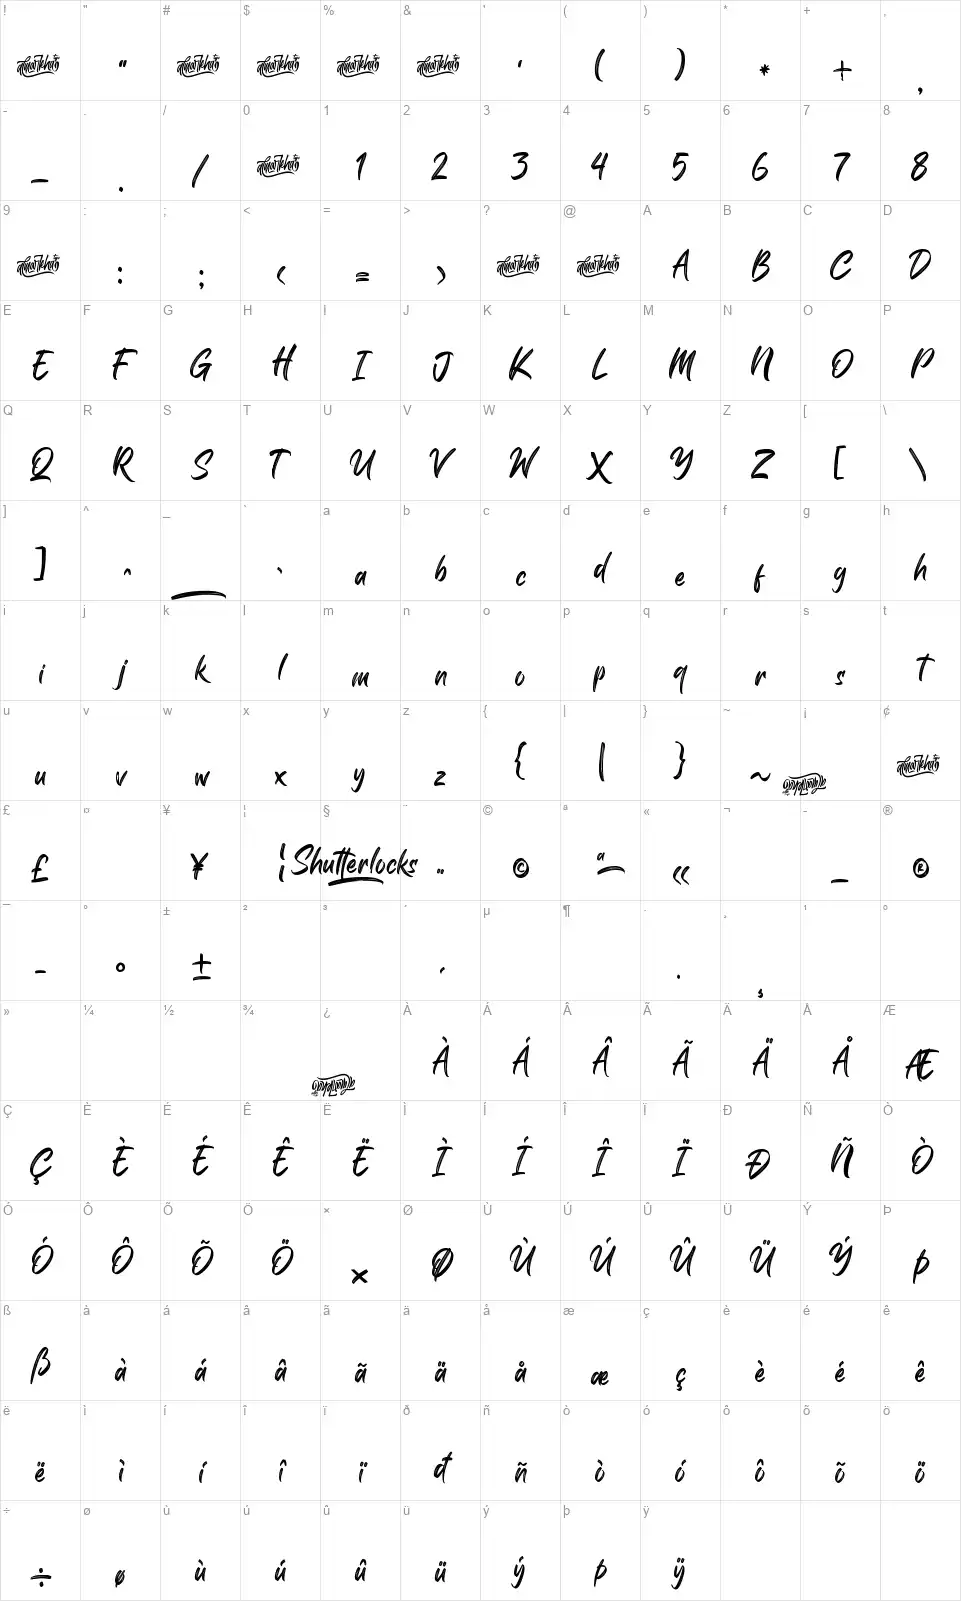 ! " # $ % & ' ( ) * + ,
" ' ( ) * + ,
- . / 0 1 2 3 4 5 6 7 8
- . / 1 2 3 4 5 6 7 8
9 : ; < = > ? @ A B C D
: ; < = > A B C D
E F G H I J K L M N O P
E F G H I J K L M N O P
Q R S T U V W X Y Z [ \
Q R S T U V W X Y Z [ \
] ^ _ ` a b c d e f g h
] ^ _ ` a b c d e f g h
i j k l m n o p q r s t
i j k l m n o p q r s t
u v w x y z { | } ~ ¡ ¢
u v w x y z { | } ~
£ ¤ ¥ ¦ § ¨ © ª « ¬ - ®
£ ¥ ¦ Shutterlocks ¨ © ª « - ®
¯ ° ± ² ³ ´ µ ¶ · ¸ ¹ º
¯ ° ± ´ · ¸
» ¼ ½ ¾ ¿ À Á Â Ã Ä Å Æ
À Á Â Ã Ä Å Æ
Ç È É Ê Ë Ì Í Î Ï Ð Ñ Ò
Ç È É Ê Ë Ì Í Î Ï Ð Ñ Ò
Ó Ô Õ Ö × Ø Ù Ú Û Ü Ý Þ
Ó Ô Õ Ö × Ø Ù Ú Û Ü Ý Þ
ß à á â ã ä å æ ç è é ê
ß à á â ã ä å æ ç è é ê
ë ì í î ï ð ñ ò ó ô õ ö
ë ì í î ï ð ñ ò ó ô õ ö
÷ ø ù ú û ü ý þ ÿ
÷ ø ù ú û ü ý þ ÿ